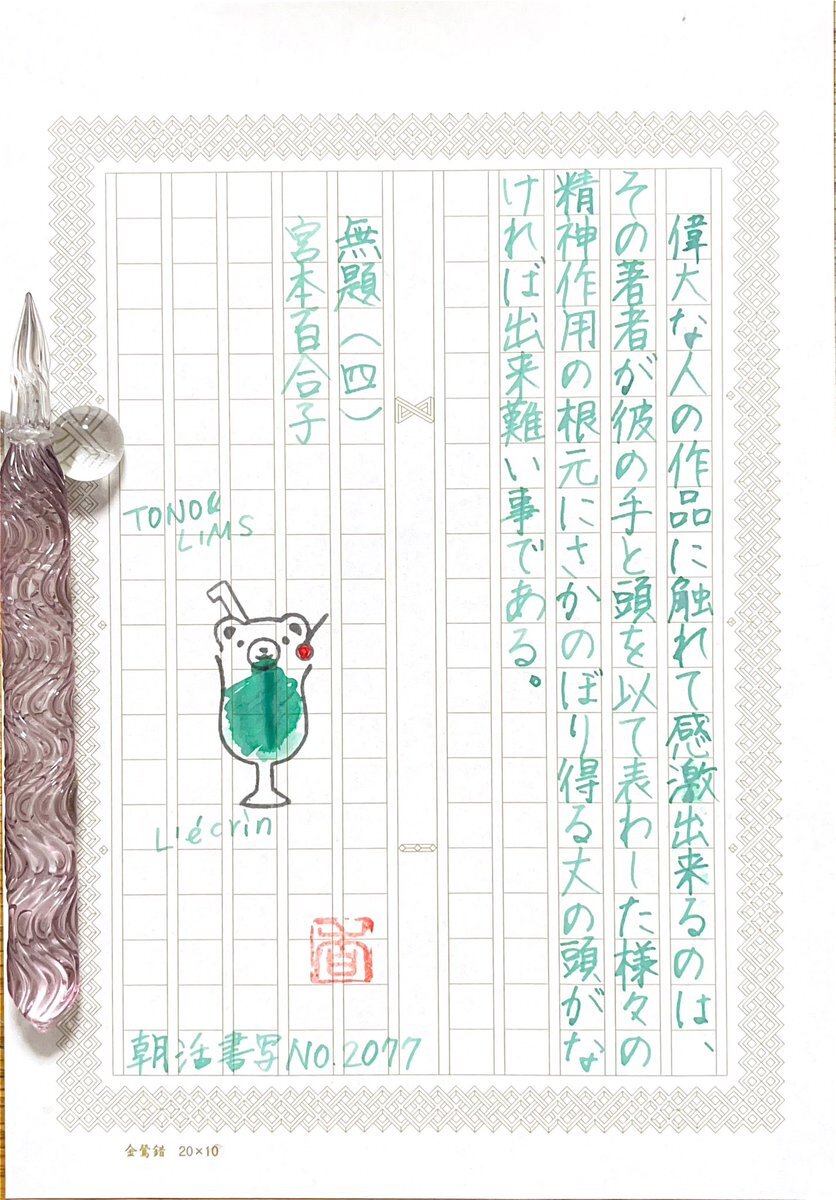 偉大な人の作品に触れて感激出来るのは、
その著者が彼の手と頭を以て表わした様々の
精神作用の根元にさかのぼり得る丈の頭がな
ければ出来難い事である。
無題(四)
宮本百合子
TONO&
LIMS
L'écrin
朝活書写NO.2077
金鶯錯 20×10